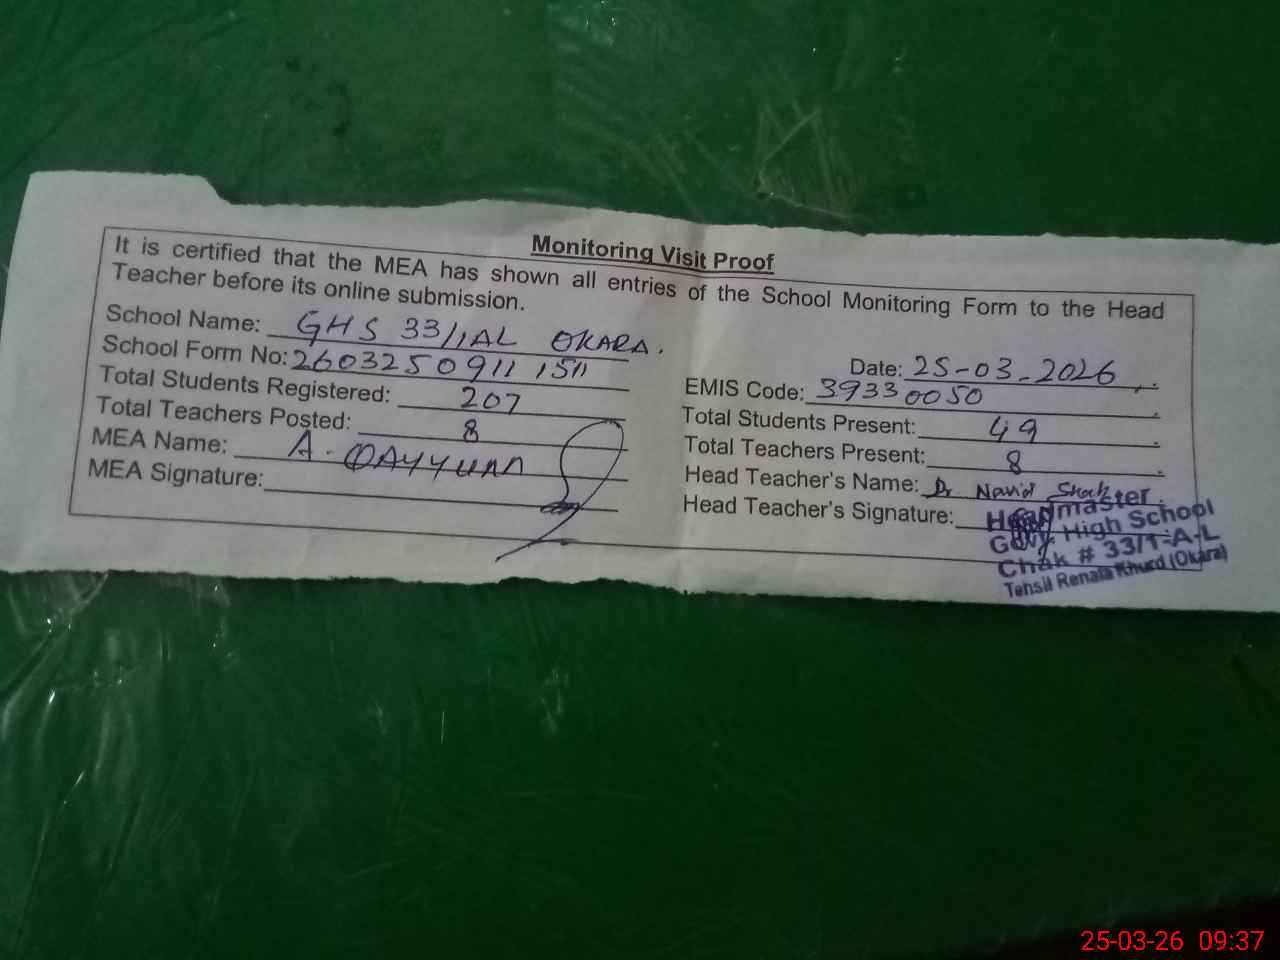 Monitoring Visit Proof
It is certified that the MEA has shown all entries of the School Monitoring Form to the Head
Teacher before its online submission.
School Name: GHS 33/1AL OKARA.
Date: 25-03-2026
School Form No: 2603250911 1511
EMIS Code: 39330050
Total Students Registered: 207
Total Students Present: 49
Total Teachers Posted: 8
Total Teachers Present: 8
MEA Name: A. QAYYUM
Head Teacher's Name: Dr. Navid
MEA Signature:
Head Teacher's Signature:
Headmaster
Govt. High School
Chak # 33/1-A-L
Tehsil Renala Khurd (Okara)
25-03-26 09:37